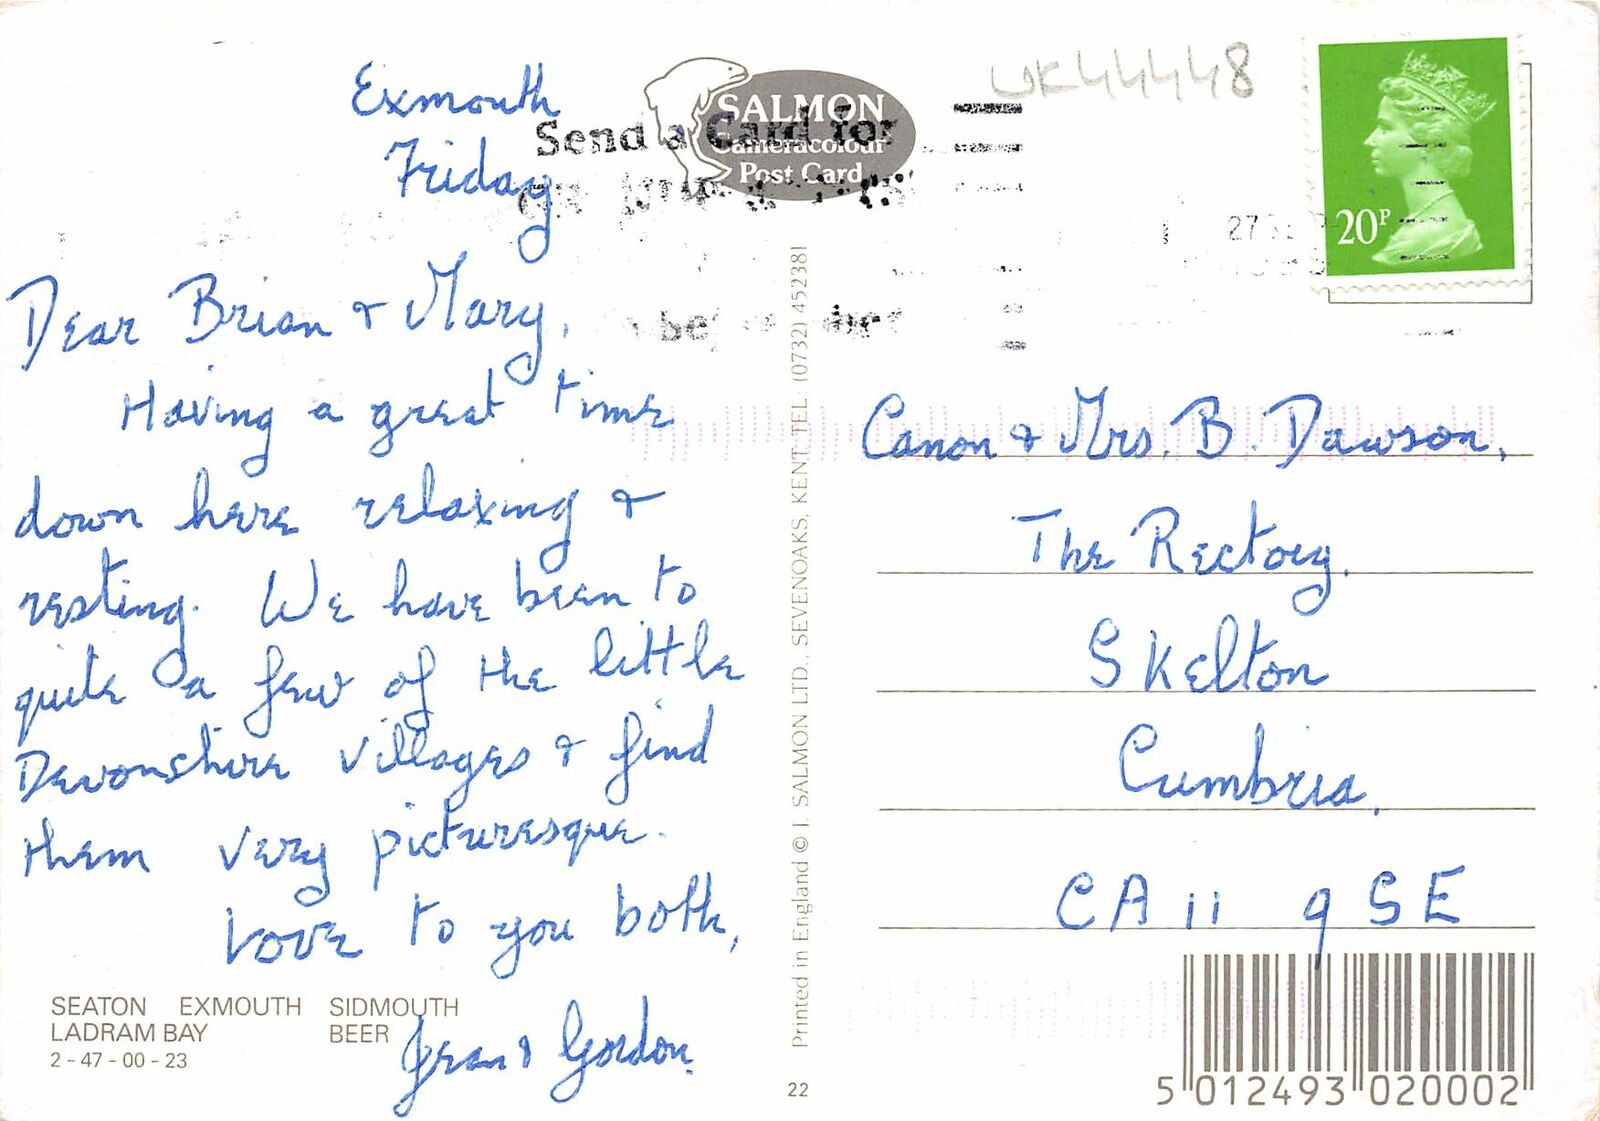 Exmouth
Friday
Dear Brian & Mary,
Having a great time
down here relaxing &
resting. We have been to
quite a few of the little
Devonshire villages & find
them very picturesque.
Love to you both,
Jean & Gordon.
SEATON EXMOUTH SIDMOUTH
LADRAM BAY BEER
2 - 47 - 00 - 23
SALMON
Cameracolour
Post Card
Send a Card for
UK44448
20P
Printed in England © J. SALMON LTD., SEVENOAKS, KENT. TEL: (0732) 452381
22
Canon & Mrs. B. Dawson,
The Rectory.
Skelton
Cumbria.
CA11 9SE
5 012493 020002